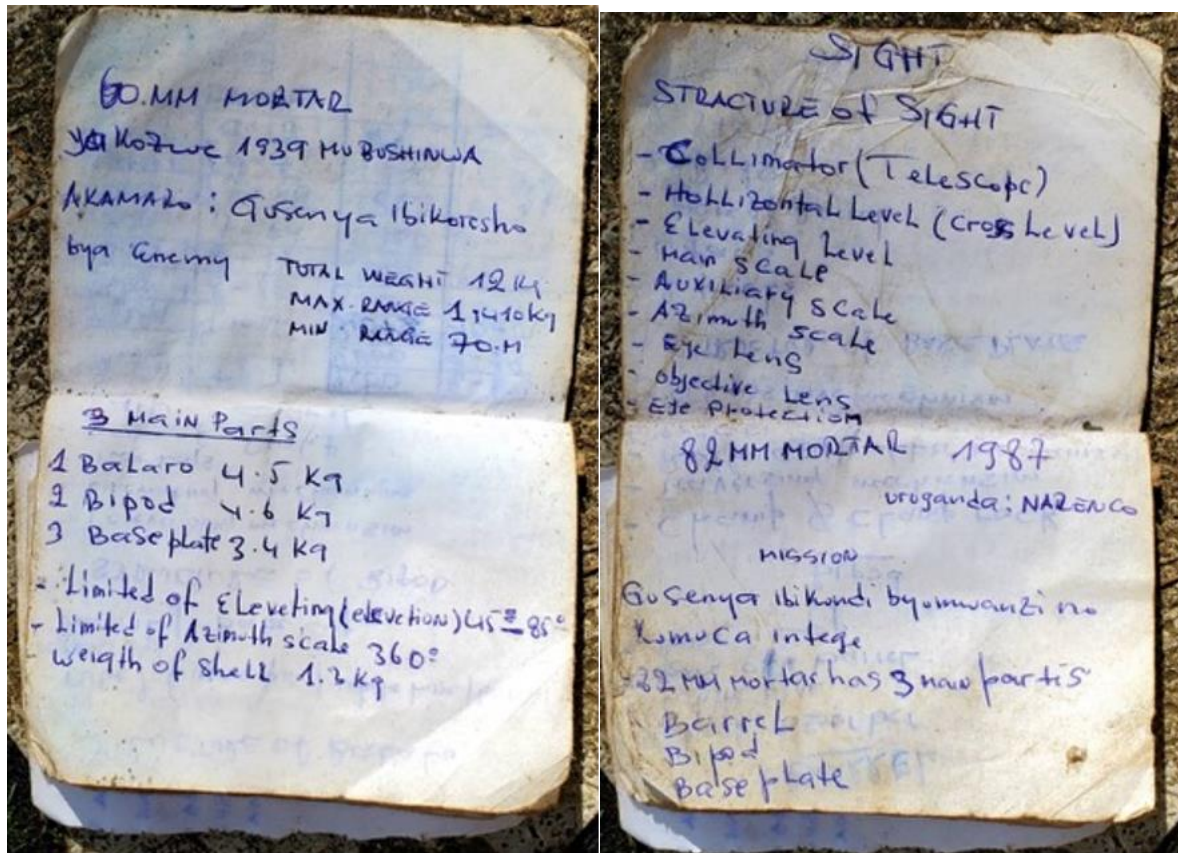 60.MM MORTAR
yakozwe 1939 MUBUSHINWA
AKAMARO : Gusenya Ibikoresho
bya Enemy
TOTAL WEGHT 12 Kg
MAX. RANGE 1,410Kg
MIN. RANGE 70.M
3 Main Parts
1 Balaro 4.5 Kg
2 Bipod 4.6 Kg
3 Baseplate 3.4 Kg
- Limited of Eleveting (elevetion) 45° - 85°
- Limited of Azimuth scale 360°
- weigth of shell 1.3 Kg
SIGHT
STRACTURE of SIGHT
- Collimator (Telescope)
- Hollizontal Level (Cross Level)
- Elevating Level
- Main Scale
- Auxiliary Scale
- Azimuth Scale
- Eye Lens
- objective Lens
- Eye Protection
82MM MORTAR 1987
uruganda : NARENCO
MISSION
Gusenya ibikundi byumwanzi no
kumuca intege
82 MM mortar has 3 main partis
Barrel
Bipod
Base plate